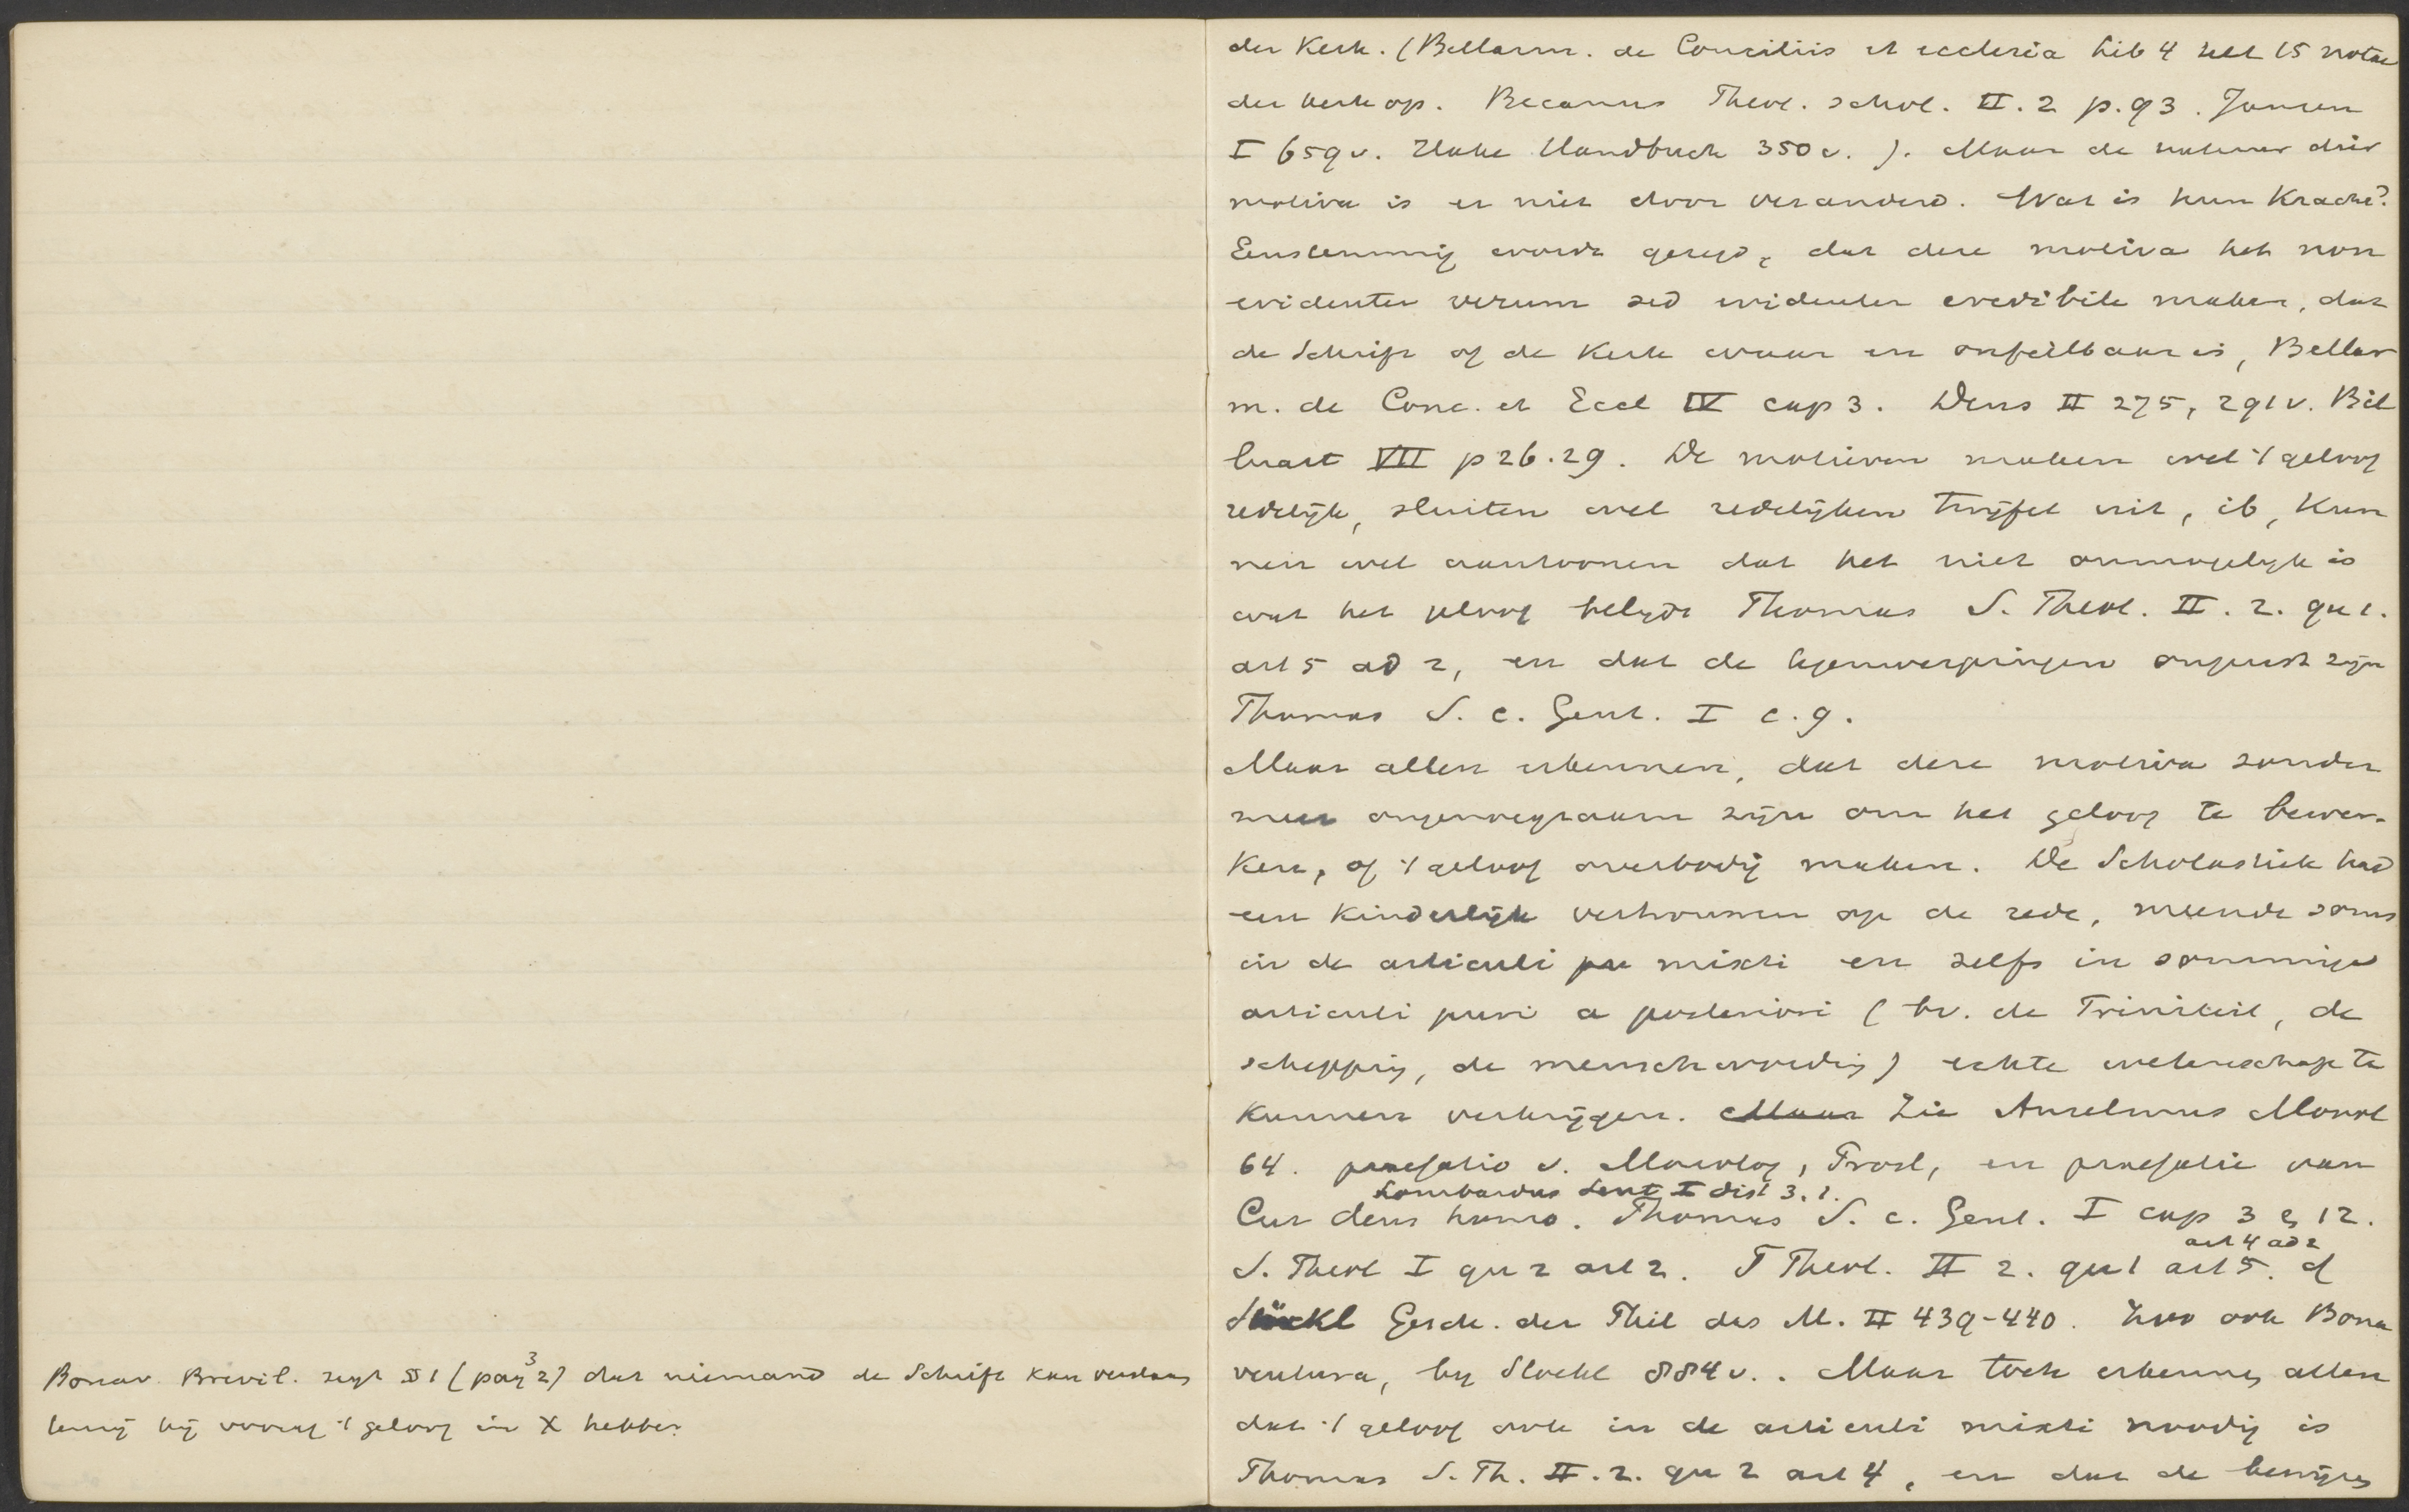 Bonav. Brevil. zegt § 1 (pag 3 2) dat niemand de Schrift kan verstaan
tenzij hij vooraf 't geloof in X hebbe.
der Kerk. (Bellarm. de Conciliis et ecclesia lib 4 telt 15 notae
der kerk op. Becanus Theol. schol. II. 2 p. 93. Jansen
I 659 v. Hake Handbuch 350 v. ). Maar de natuur dier
motiva is er niet door veranderd. Wat is hun Kracht?
Eenstemmig wordt gezegd, dat deze motiva het non
evidenter verum sed evidenter credibile maken, dat
de Schrift of de Kerk waar en onfeilbaar is, Bellar
m. de Conc. et Eccl IV cap 3. Dens II 275, 291 v. Bil
luart VII p 26. 29. De motieven maken wel 't geloof
redelijk, sluiten wel redelijken twijfel uit, ib, Kun
nen wel aantoonen dat het niet onmogelijk is
wat het geloof belijdt Thomas S. Theol. II. 2. qu 1.
art 5 ad 2, en dat de tegenwerpingen onjuist zijn
Thomas S. c. Gent. I c. 9.
Maar allen erkennen, dat deze motiva zonder
meer ongenoegzaam zijn om het geloof te bewer-
ken, of 't geloof overbodig maken. De Scholastiek had
een Kinderlijk vertrouwen op de rede, meende soms
in de articuli pu mixti en zelfs in sommige
articuli puri a posteriori ( bv. de Triniteit, de
schepping, de menschwording) echte wetenschap te
Kunnen verkrijgen. Maar Zie Anselmus Monol
64. praefatio v. Monolog, Prosl, en praefatie van
Lombardus Sent I dist 3. 1.
Cur deus homo. Thomas S. c. Gent. I cap 3 & 12.
art 4 ad 2
S. Theol I qu 2 art 2. S Theol. II 2. qu 1 art 5. cf
Stöckl Gesch. der Phil des M. II 439-440. Zoo ook Bona
ventura, by Stöckl 884 v. . Maar toch erkennen allen
dat 't geloof ook in de articuli mixti noodig is
Thomas S. Th. II. 2. qu 2 art 4, en dat de bewijzen